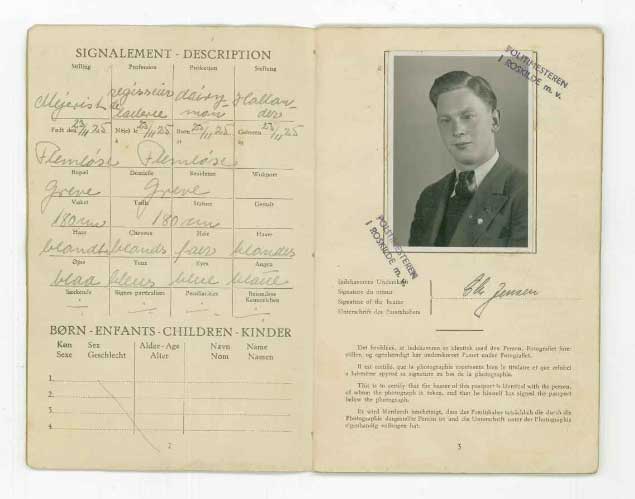 SIGNALEMENT - DESCRIPTION
Stilling Profession Profession Stellung
Mejerist régisseur de laiterie dairyman Hollander
Født den 23/11 25 Né(e) le 23/11 25 Born 23/11 25 Geboren 23/11 25
Flemløse Flemløse
Bopæl Domicile Residence Wohnort
Greve Greve
Vækst Taille Stature Gestalt
180 cm 180 cm
Haar Cheveux Hair Haare
blandt blands fair blandes
Øjne Yeux Eyes Augen
blaa bleus blue blaue
Særkende Signes particuliers Peculiarities Besondere Kennzeichen
BØRN - ENFANTS - CHILDREN - KINDER
Køn Sex Alder - Age Navn Name
Sexe Geschlecht Alter Nom Namen
1.
2.
3.
4.
2
POLITIMESTEREN
I ROSKILDE m. v.
POLITIMESTEREN
I ROSKILDE m. v.
Indehaverens Underskrift
Signature du titulaire
Signature of the bearer
Unterschrift des Passinhabers
Jensen
Det bevidnes, at Indehaveren er identisk med den Person, Fotografiet forestiller, og egenhændigt har underskrevet Passet under Fotografiet.
Il est certifié, que la photographie représente bien le titulaire et que celui-ci a lui-même apposé sa signature au bas de la photographie.
This is to certify that the bearer of this passport is identical with the person, of whom the photograph is taken, and that he himself has signed the passport below the photograph.
Es wird hierdurch bescheinigt, dass der Passinhaber tatsächlich die durch die Photographie dargestellte Person ist und die Unterschrift unter der Photographie eigenhändig vollzogen hat.
3